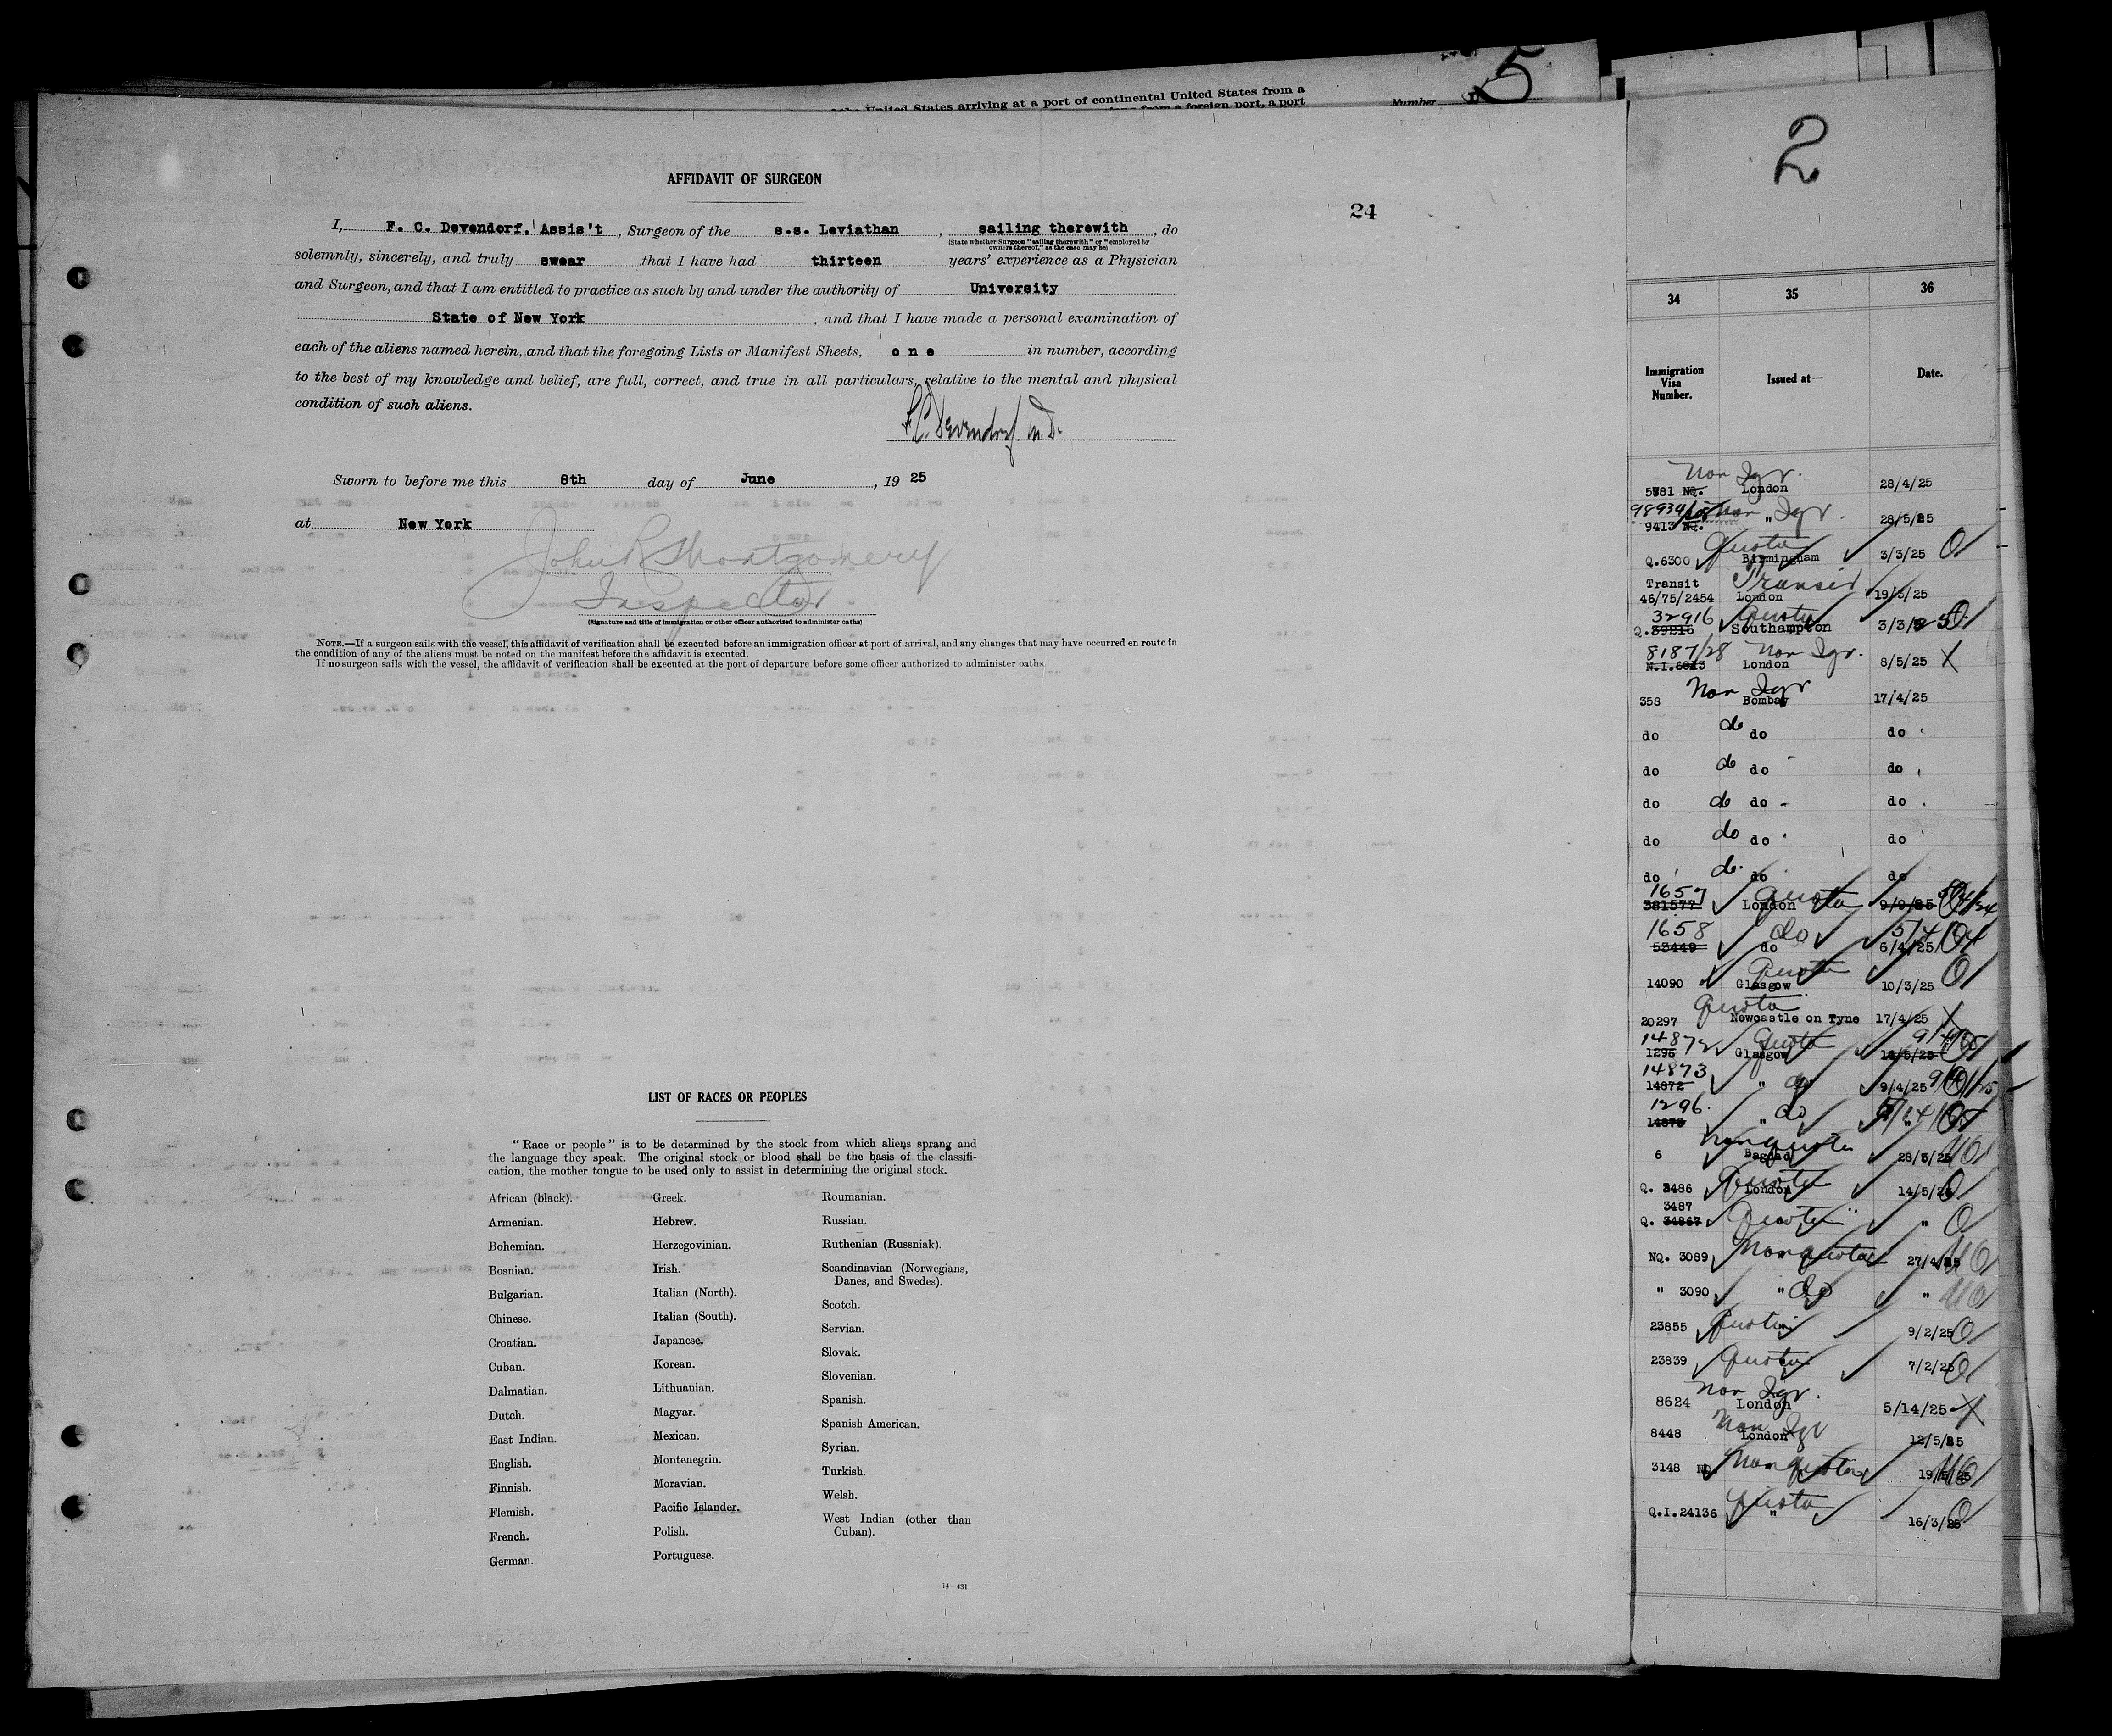 the United States arriving at a port of continental United States from a
a foreign port, a port
Number
5
AFFIDAVIT OF SURGEON
24
I, F. C. Devendorf, Assis't, Surgeon of the s.s. Leviathan, sailing therewith, do
(State whether Surgeon "sailing therewith" or "employed by
owners thereof," as the case may be)
solemnly, sincerely, and truly swear that I have had thirteen years' experience as a Physician
and Surgeon, and that I am entitled to practice as such by and under the authority of University
State of New York, and that I have made a personal examination of
each of the aliens named herein, and that the foregoing Lists or Manifest Sheets, one in number, according
to the best of my knowledge and belief, are full, correct, and true in all particulars, relative to the mental and physical
condition of such aliens.
F.C. Devendorf M.D.
Sworn to before me this 8th day of June, 19 25
at New York
John R Montgomery
Inspector
(Signature and title of immigration or other officer authorized to administer oaths)
NOTE.—If a surgeon sails with the vessel, this affidavit of verification shall be executed before an immigration officer at port of arrival, and any changes that may have occurred en route in
the condition of any of the aliens must be noted on the manifest before the affidavit is executed.
If no surgeon sails with the vessel, the affidavit of verification shall be executed at the port of departure before some officer authorized to administer oaths.
LIST OF RACES OR PEOPLES
"Race or people" is to be determined by the stock from which aliens sprang and
the language they speak. The original stock or blood shall be the basis of the classifi-
cation, the mother tongue to be used only to assist in determining the original stock.
African (black).
Armenian.
Bohemian.
Bosnian.
Bulgarian.
Chinese.
Croatian.
Cuban.
Dalmatian.
Dutch.
East Indian.
English.
Finnish.
Flemish.
French.
German.
Greek.
Hebrew.
Herzegovinian.
Irish.
Italian (North).
Italian (South).
Japanese.
Korean.
Lithuanian.
Magyar.
Mexican.
Montenegrin.
Moravian.
Pacific Islander.
Polish.
Portuguese.
Roumanian.
Russian.
Ruthenian (Russniak).
Scandinavian (Norwegians,
Danes, and Swedes).
Scotch.
Servian.
Slovak.
Slovenian.
Spanish.
Spanish American.
Syrian.
Turkish.
Welsh.
West Indian (other than
Cuban).
14—431
2
34 35 36
Immigration
Visa
Number.
Issued at—
Date.
Non Igr.
5781 NQ. London 28/4/25
Non Igr.
9413 NQ. " 28/5/25
Quota
Q.6300 Birmingham 3/3/25 O
Transit Transit
46/75/2454 London 19/5/25
32916 Quota
Q.39216 Southampton 3/3/25
8187/28 Non Igr.
N.I. London 8/5/25 X
Non Igr
358 Bombay 17/4/25
do
do do do
do
do do do
do
do do do
do
do do do
do
do do do
1657 Quota
381577 London 9/9/25
1658 do
53449 do 6/4/25
Quota
14090 Glasgow 10/3/25 O
Quota
20297 Newcastle on Tyne 17/4/25 X
14872 Quota
1295 Glasgow
14873 do
14872 " 9/4/25
1296. do
14873 " "
Non Quota
6 Bagdad 28/3/25
Quota
Q. 3486 London 14/5/25
3487 Quota
Q. 34867 " " O
NQ. 3089 Non quota 27/4/25
" 3090 " do "
23855 Quota 9/2/25 O
23839 Quota 7/2/25 O
Non Igr.
8624 London 5/14/25 X
Non Igr
8448 London 12/5/25
3148 NQ. Non Quota 19/5/25
Quota
Q.I.24136 " 16/3/25